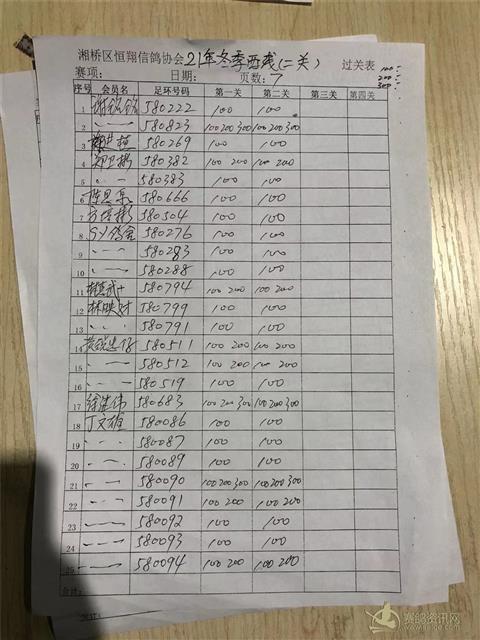 湘桥区恒翔信鸽协会21年冬季西线(二关) 过关表
100-
200-
300-
赛项: 日期: 页数: 7
序号 会员名 足环号码 第一关 第二关 第三关 第四关
1 580222 100 100
2 〃 580823 100 200 300 100 200 300
3 580269 100 100
4 580382 100 200 100 200
5 〃 580383 100 100
6 580666 100 100
7 580504 100 100
8 SY鸽舍 580276 100 100
9 〃 580283 100 100
10 〃 580288 100 100
11 580794 100 200 100 200
12 林映才 580799 100 100
13 〃 580791 100 100
14 580511 100 200 100 200
15 〃 580512 100 200 100 200
16 〃 580519 100 100
17 580683 100 200 300 100 200 300
18 丁文雄 580086 100 100
19 〃 580087 100 100
20 〃 580089 100 100
21 〃 580090 100 200 300 100 200 300
22 〃 580091 100 200 100 200
23 〃 580092 100 100
24 〃 580093 100 100
25 〃 580094 100 200 100 200
合计:
赛鸽资讯网